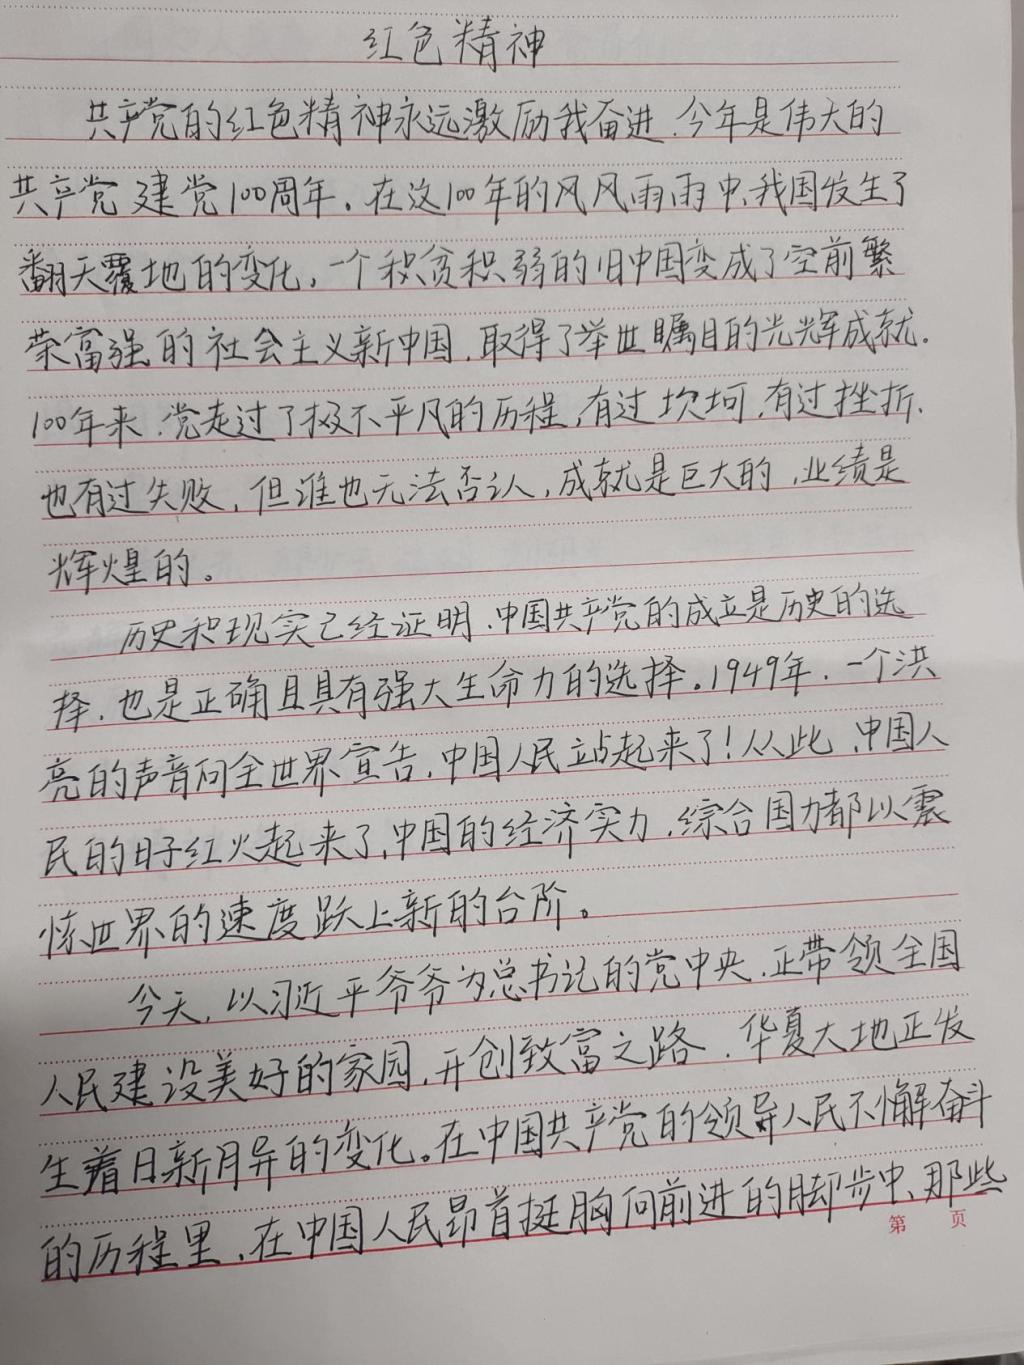 红色精神
共产党的红色精神永远激励我奋进，今年是伟大的
共产党建党100周年，在这100年的风风雨雨中，我国发生了
翻天覆地的变化，一个积贫积弱的旧中国变成了空前繁
荣富强的社会主义新中国，取得了举世瞩目的光辉成就。
100年来，党走过了极不平凡的历程，有过坎坷，有过挫折，
也有过失败，但谁也无法否认，成就是巨大的，业绩是
辉煌的。
历史和现实已经证明，中国共产党的成立是历史的选
择，也是正确且具有强大生命力的选择。1949年，一个洪
亮的声音向全世界宣告，中国人民立站起来了！从此，中国人
民的日子红火起来了，中国的经济实力，综合国力都以震
惊世界的速度跃上新的台阶。
今天，以习近平爷爷为总书记的党中央，正带领全国
人民建设美好的家园，开创致富之路，华夏大地正发
生着日新月异的变化。在中国共产党的领导人民不懈奋斗
的历程里，在中国人民昂首挺胸向前进的脚步中，那些
第 页